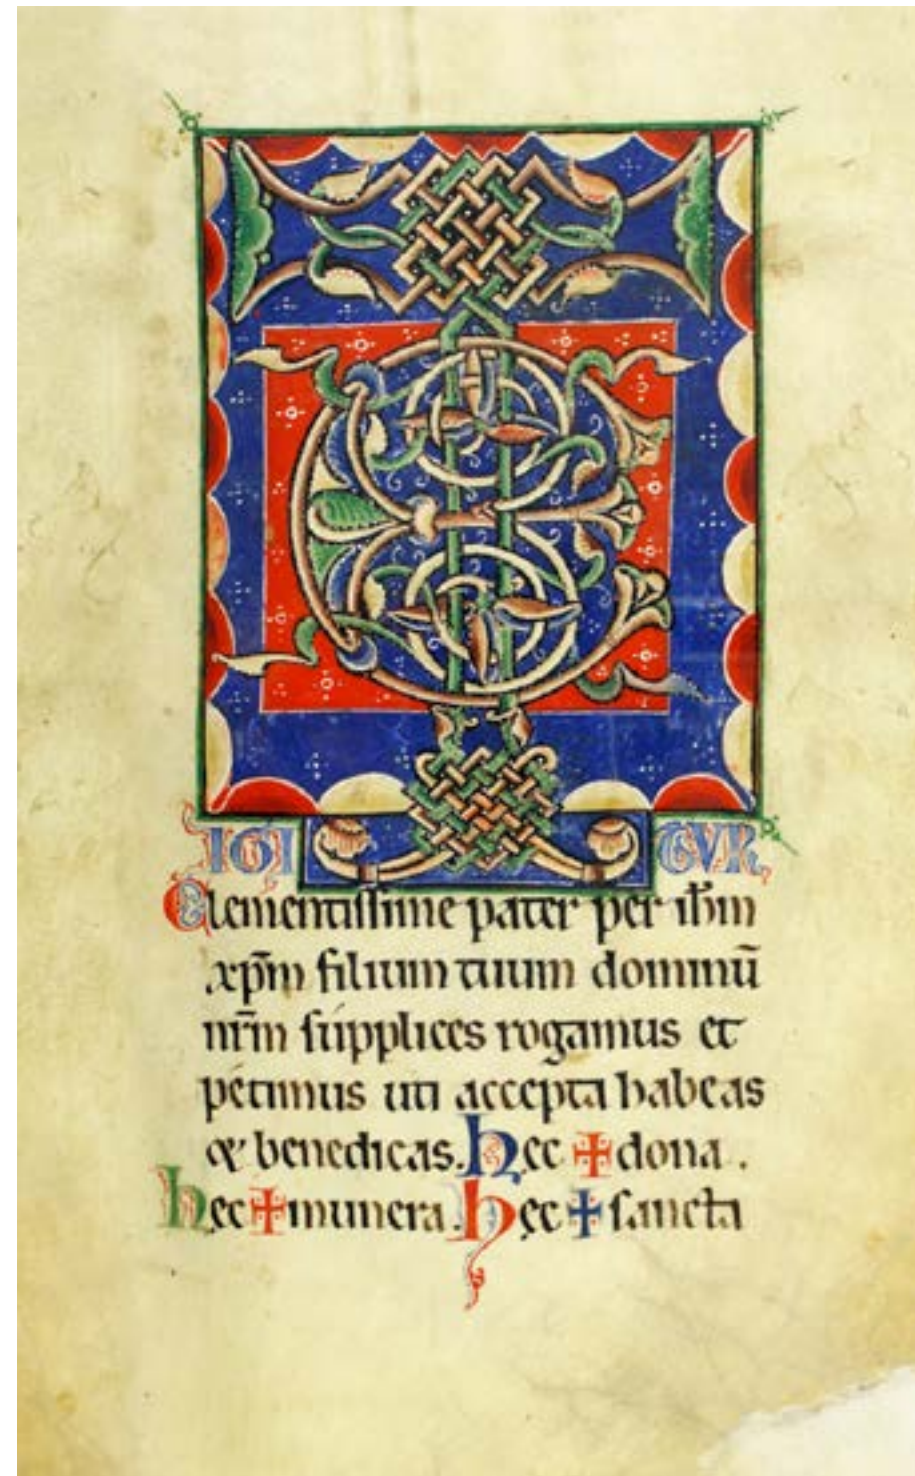 TE
IGI TVR
Clementissime pater per ihm̄
xp̄m filium tuum dominū
nr̄m supplices rogamus et
petimus uti accepta habeas
& benedicas. Hec ✠ dona.
Hec ✠ munera. Hęc ✠ sancta